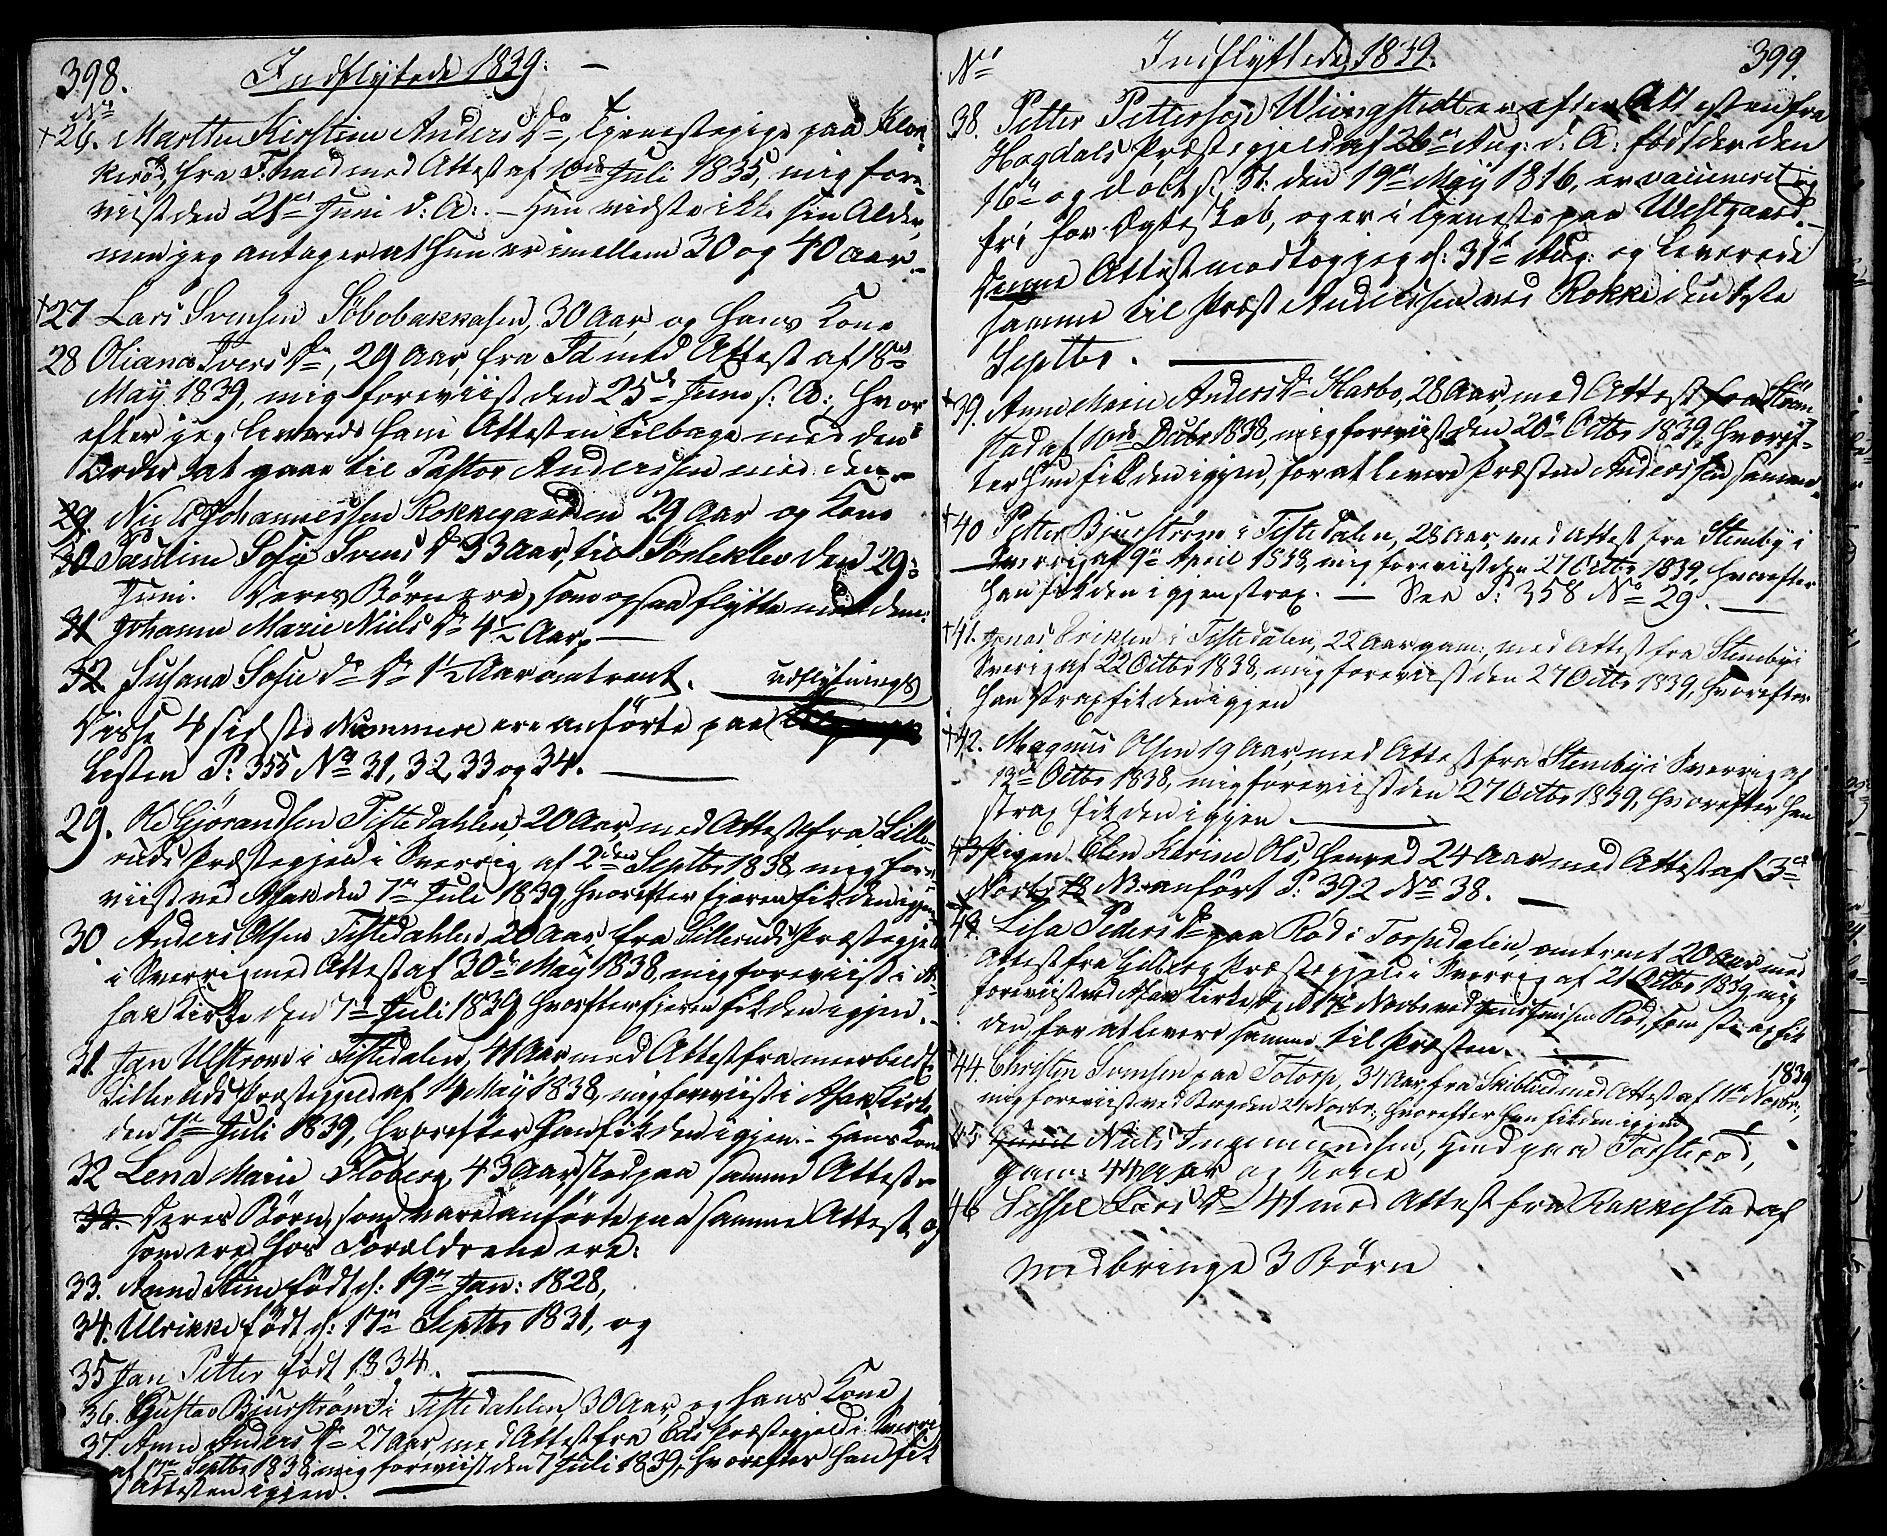 398. Indflyttede 1839. —
No
+26. Marthe Kirstine Anders Dr, Tjenestepige paa Klok-
kerød, fra F:hald med Attest af 10de Juli 1835, mig fore-
viist den 21de Juni d: A: — Hun vidste ikke sin Alder,
men jeg antager at hun er imellem 30 og 40 Aar.
+27 Lars Svensen Söbobakkasen, 30 Aar, og hans Kone
28 Oliana Ivers Dr, 29 Aar, fra Id, med Attest af 18de
May 1839, mig foreviist den 25de Juni s: A:, hvor
efter jeg leverede ham Attesten tilbage med den
Order at gaae til Pastor Anderssen med den.
29. Niels Johannessen Rokkegaarden 29 Aar og Kone
30 Pauline Sofie Svens Dr 33 Aar, til Sörlekleo den 29:
Juni. Deres Börn ere, som ogsaa flytte med dem:
31 Johanne Marie Niels Dr 4½ Aar. —
32 Susana Sofie do Dr 1½ Aar omtrent. udflytnings
Disse 4 sidste Nummere ere anförte paa
Listen P: 355 No 31, 32, 33 og 34. —
29. Ole Gjörandsen Tistedahlen, 20 Aar med Attest fra Sille-
ruds Præstegjeld i Sverrig af 2den Septbr 1838, mig fore-
viist ved Asak den 7de Juli 1839, hvorefter Eieren fik den igjen
30 Anders Olsen Tistedahlen, 20 Aar, fra Silleruds Præstegjeld
i Sverrig med Attest af 30te May 1838, mig foreviist i A-
sak Kirke den 7de Juli 1839, hvorefter Eieren fik den igjen.
31. Jan Ulström i Tistedalen, 41 Aar, med Attest fra
Silleruds Præstegjeld af 14 May 1838, mig foreviist i Asak Kirke
den 7de Juli 1839, hvorefter han fik den igjen. — Hans Kone
32 Lena Marie Floberg, 43 Aar stod paa samme Attest.
33. Deres Börn, som vare anförte paa samme Attest, og
som ere hos Forældrene ere:
33. Anna Stina födt d: 19de Jan: 1828,
34. Ulrikke födt d: 17de Septbr 1831, og
35 Jan Petter födt 1834. —
36. Gustav Bjurström i Tistedahlen, 30 Aar, og hans Kone
37. Anna Anders Dr 27 Aar, med Attest fra Eds Præstegjeld i Sverrig
af 17de Septbr 1838, mig foreviist den 7 Juli 1839, hvorefter han fik
Attesten igjen. —
No Indflyttede 1839. 399.
38. Petter Petterson Wiingstedt er efter Attesten fra
Hogdals Præstegjeld af 26de Aug: d: A: födt der den
16de og döbt s: St: den 19de May 1816, er vaccineret og
fri for Ægteskab, og er i Tjeneste paa Westgaard.
Denne Attest modtog jeg d: 31te Aug: og leverede
samme til Præst Anderssen ved Rokke den 1ste
Septbr. —
+39. Anne Marie Anders Dr Karbo, 28 Aar, med Attest fra Ström-
stad af 10de Debr 1838, mig foreviist den 20de Octbr 1839, hvoref-
ter hun fik den igjen, for at levere Præsten Anderssen samme.
+40 Petter Bjurström i Tistedalen, 28 Aar, med Attest fra Steneby i
Sverrig af 9de April 1838, mig foreviist den 27 Octbr 1839, hvorefter
han fik den igjen strax. — See P: 358 No 29. —
+41. Jonas Eriksen i Tistedalen, 22 Aar gam:, med Attest fra Steneby i
Sverig af 22 Octbr 1838, mig foreviist den 27 Octbr 1839, hvorefter
han strax fik den igjen
+42. Magnus Olsen 19 Aar, med Attest fra Steneby i Sverrig af
13de Octbr 1838, mig foreviist den 27 Octbr 1839, hvorefter han
strax fik den igjen. —
43 Pigen Elen Karine Ols, Henred 24 Aar med Attest af 3de
Novbr NB anfört P: 392 No 38. —
43. Lisa Peders Dr paa Röd i Torpedalen, omtrent 20 Aar med
Attest fra Præstegjeld i Sverrig af 21 Octbr 1839, mig
foreviist ved Asak Kirke d: 17de Novbr ved Röd, som strax fik
den, for at levere samme til Præsten. —
+44. Christen Svensen paa Totorp, 34 Aar, fra Skibtved med Attest af 11te Novbr 1839
mig foreviist ved Berg den 24 Novbr, hvorefter han fik den igjen
45 Niels Ingemundsen, Huusmand paa Torsteröd,
gam: 44 Aar og Kone
46 Sissel Lars Dr 41 med Attest fra Rakkestad af
medbringe 3 Börn